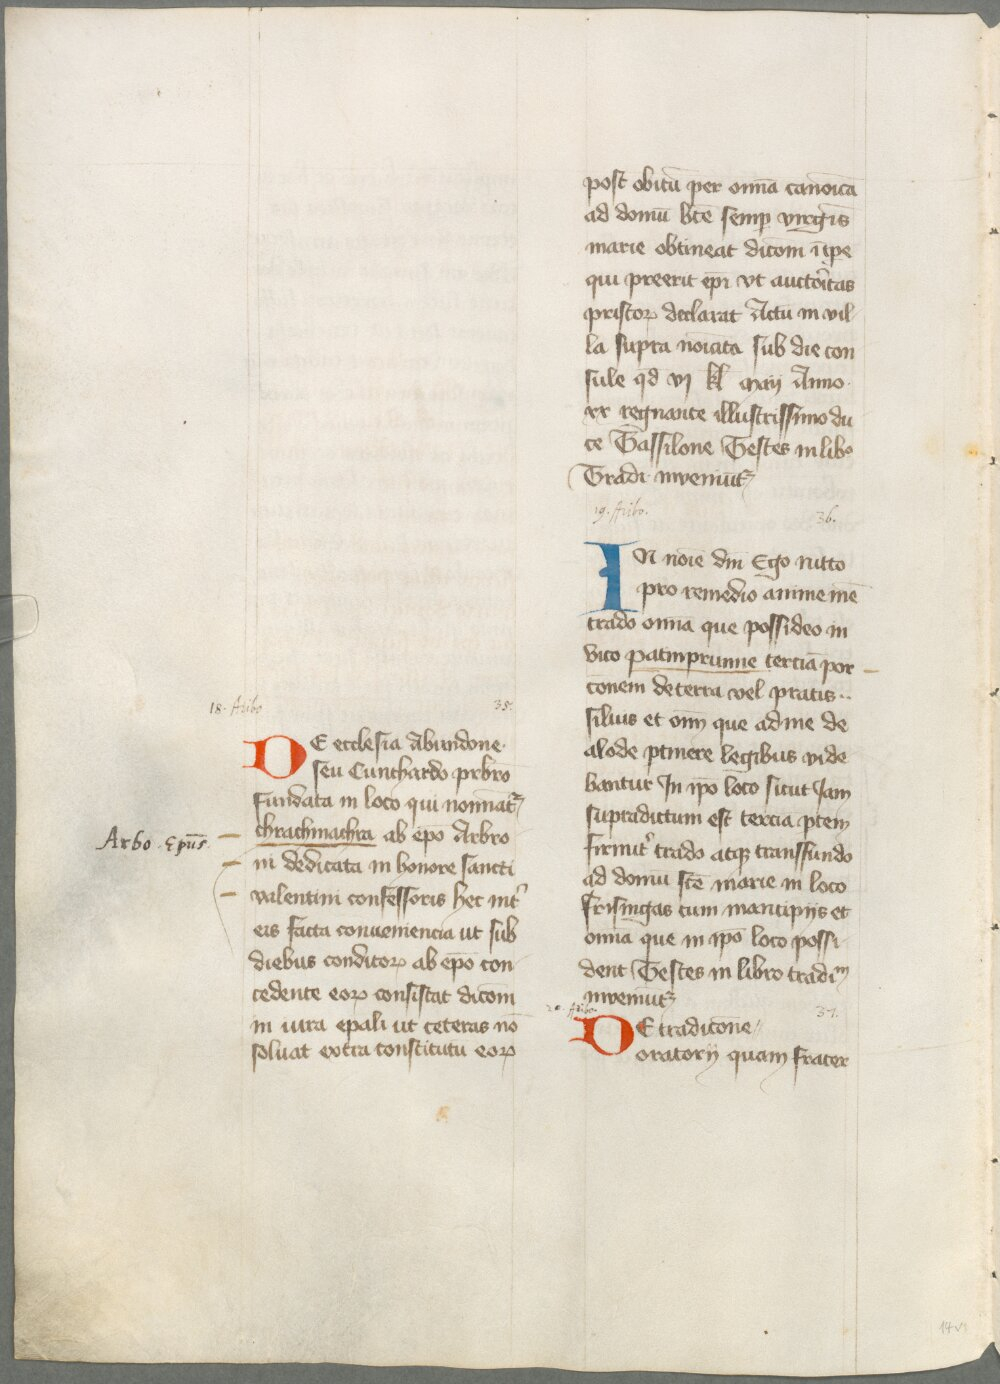 18. Aribo 35.
DE ecclesia Abundone
seu Cunthardo prbro
fundata in loco qui nominat᷑
chrachmachra ab epo Arbro
Arbo Epūs
ni dedicata in honore sancti
valentini confessoris hec int᷑
eis facta conueniencia ut sub
diebus conditoꝝ ab epō con
cedente eoꝝ consistat dicōm
in iura epali ut ceteras nō
soluat extra constitutū eoꝝ
post obitū per omīa canōicā
ad domū bt̄e semꝑ virgīs
marie obtineat dicōm
qui preerit epī vt auctōitas
pristoꝝ declarat Actū in vil-
la supra nōiata sub die con
sule qd̄ vj kl̄ Anno
xx regnante illustrissimo du
ce Tassilone Testes in lib°
Tradi inveniūt᷑
19. Aribo. 36.
IN nōie dnī Ego nitto
pro remedio anime meē
trado omīa que possideo in
vico patinprunne terciā por
cōnem de terra vel pratis
siluis et om̄ que ad me de
alode ptinere legibus vide
bantur In ip̄o loco sicut Jam
supradictum est tercia ꝑtem
firmit᷑ trado atqꝫ transfundo
ad domū stē marie in loco
frisingas cum mancipijs et
omīa que in ip̄o loco possi-
dent Testes in libro tradim
inveniūt᷑
20. Aribo. 37.
DE tradicōne
oratorij quam frater
14v